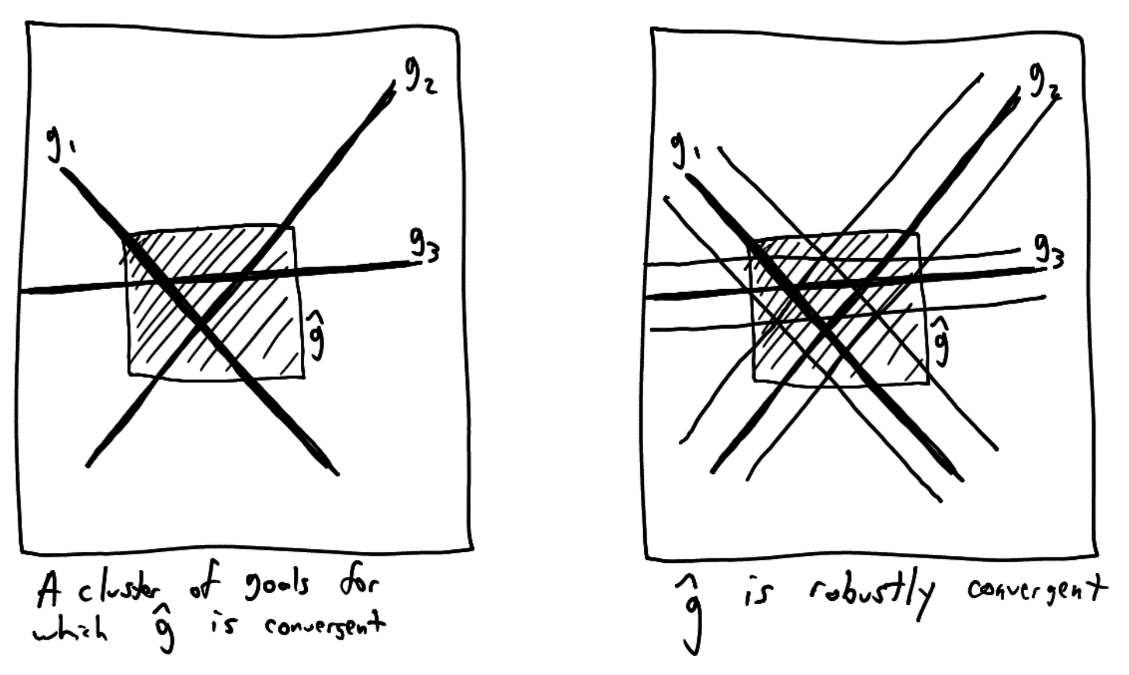 g₁
g₂
g₃
ĝ
A cluster of goals for
which ĝ is convergent
g₁
g₂
g₃
ĝ
ĝ is robustly convergent